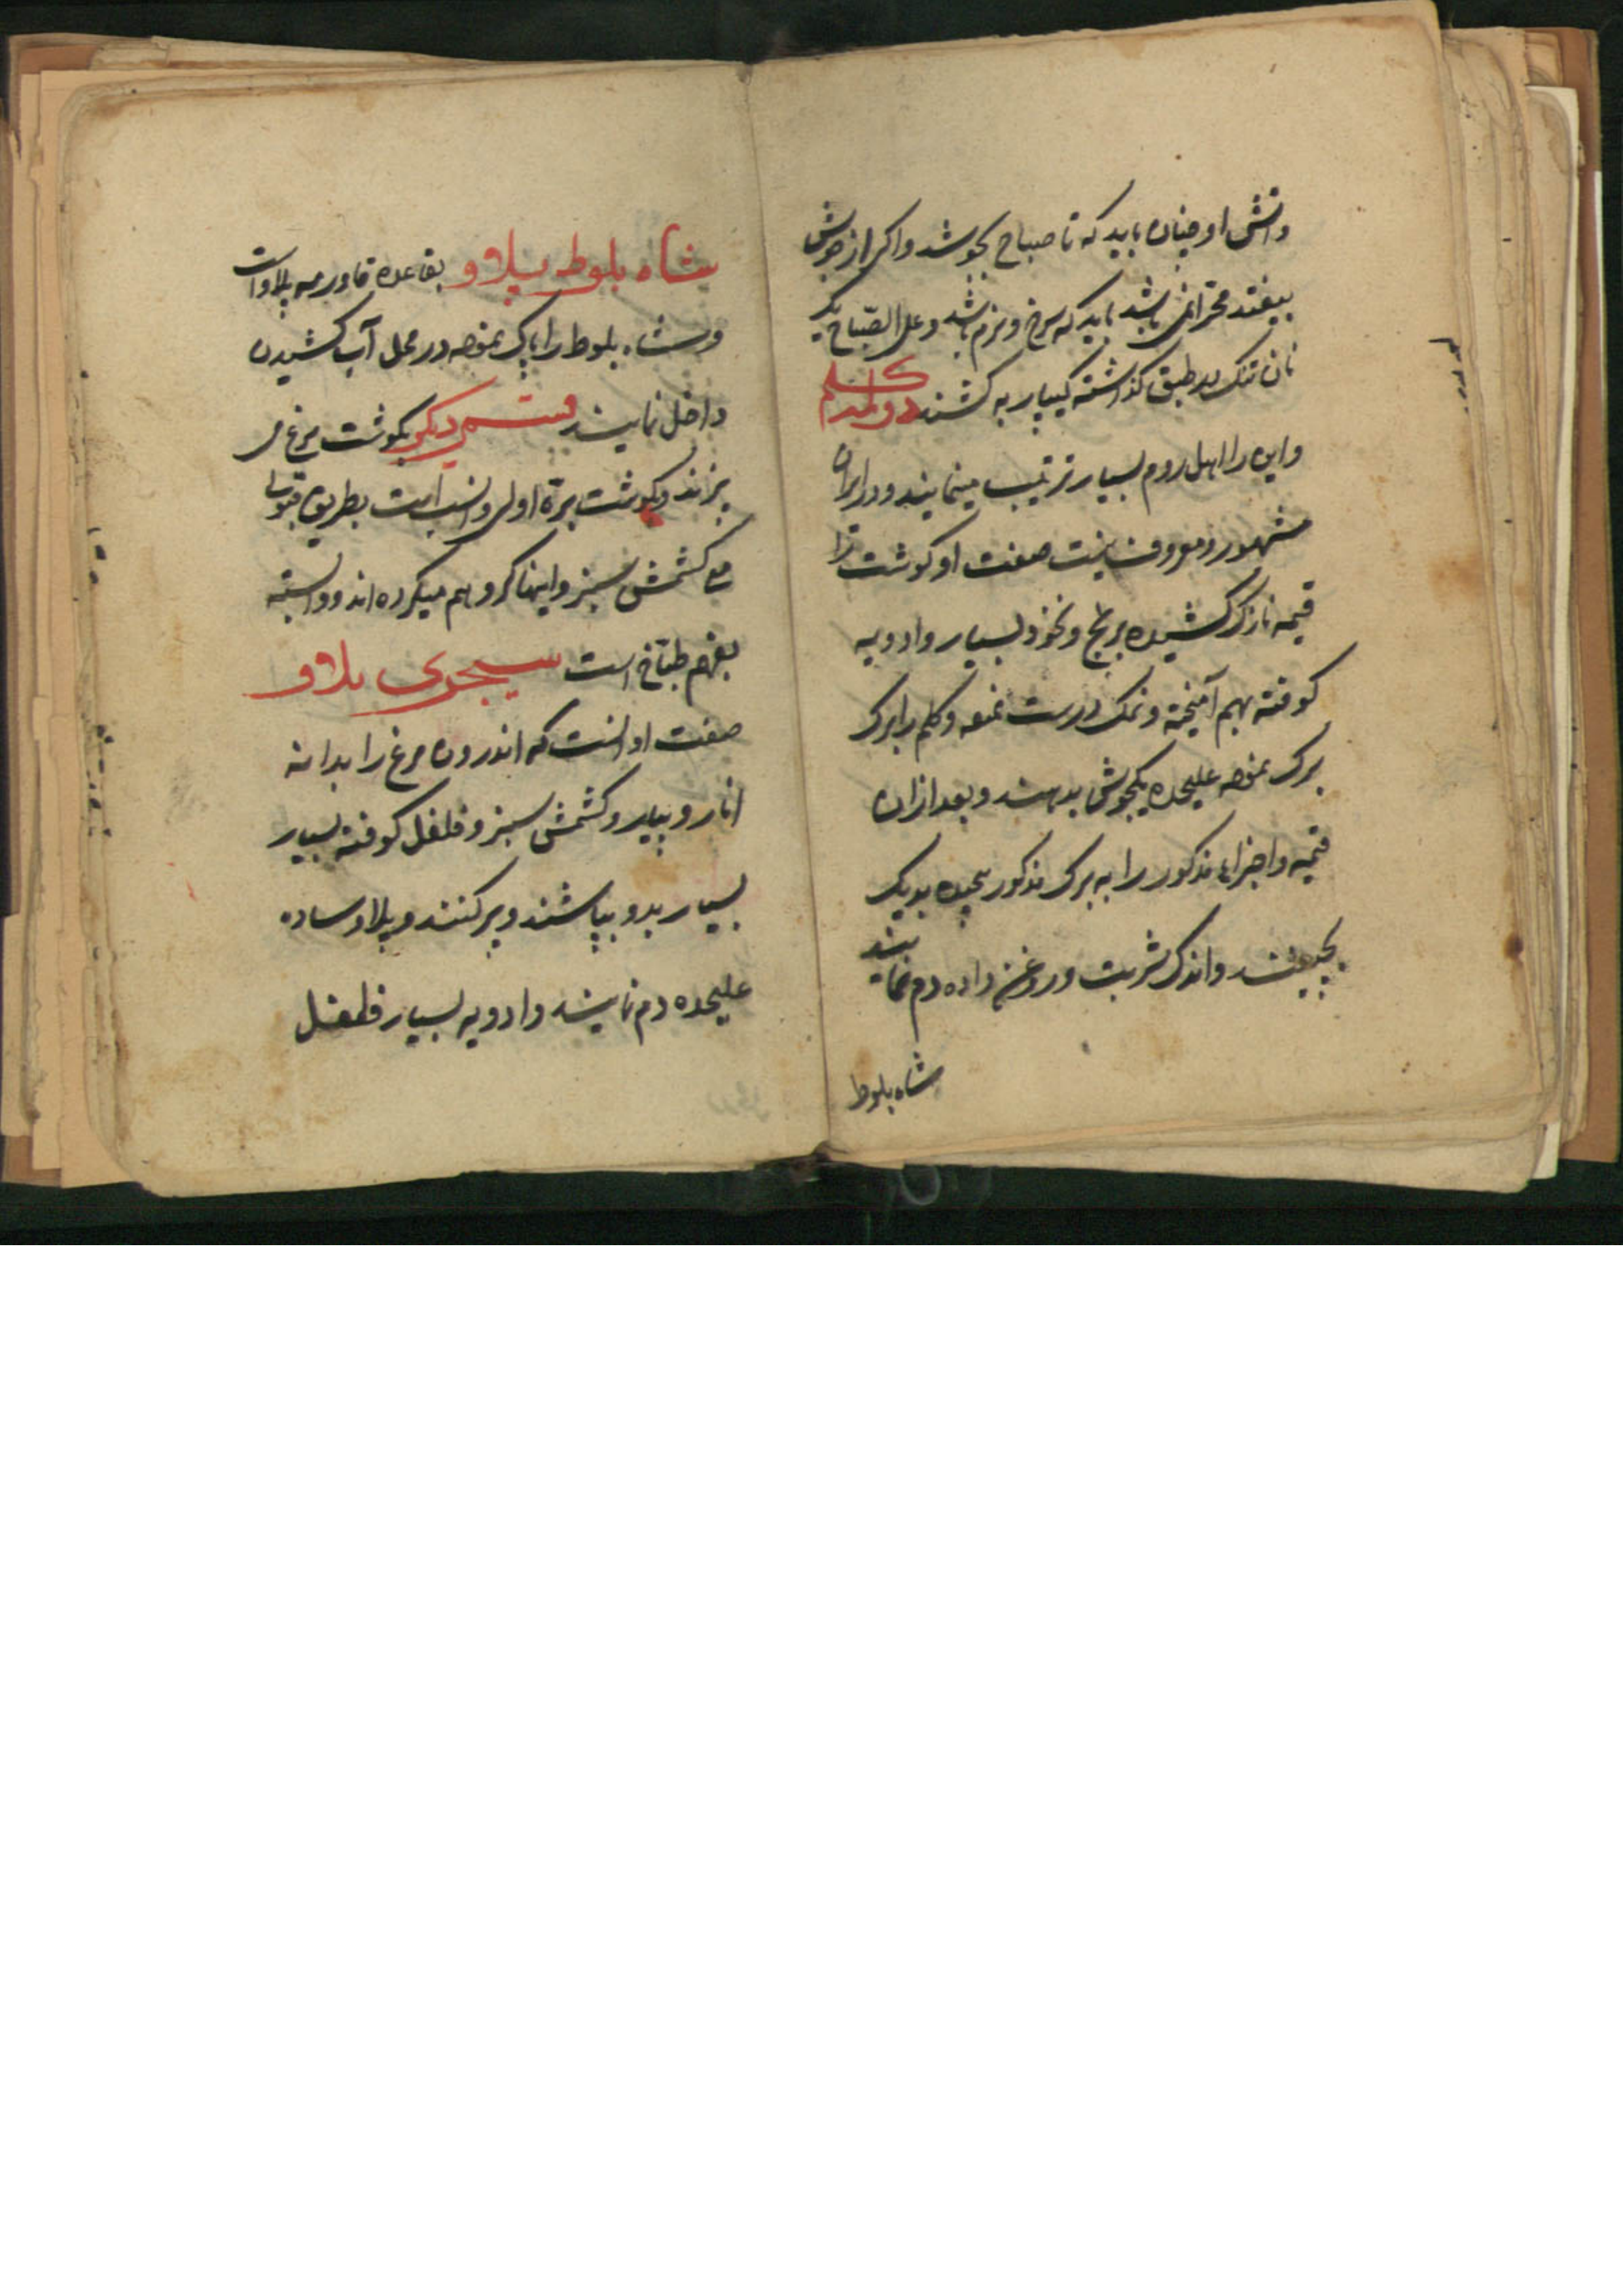 وآتش او چنان باید که تا صباح بجوشد واکر از جوش
بیفتد باشد باید که سرخ و نرم باشد و علی الصباح یک
نان تنک در طبق کذاشته کیپا بر به کشند دولمه کلم
واین را اهل روم بسیار ترتیب مینمایند و در ایران
مشهور و معروف نیست صفت او کوشت را
قیمه نازک کشیده برنج و نخود بسیار وادویه
کوفته بهم آمیخته و نمک درست نموده و کلم را برک
برک نموده علیحده یکجوش بدهند و بعد ازان
قیمه واجزاء مذکور را به برک مذکور پیچیده بدیک
بچینند واندک شربت وروغن داده دم نمایند
شاه بلوط
شاه بلوط پلاو بقاعده قاورمه پلاو است
وشاه بلوط را پاک نموده در محل آب کشیدن
داخل نمایند قسمی دیکر بکوشت مرغ می
پزند وبکوشت بره اولی وانسب است بطریق قبولی
مع کشمش سبز واینها کرو هم میکرده اند ووابسته
بفهم طباخ است سیجری پلاو
صفت او انست که اندرون مرغ را بدانه
انار و پیاز وکشمش سبز و فلفل کوفته بسیار
بسیار بدو بپاشند وپر کنند و پلاو ساده
علیحده دم نمایند وادویه بسیار فلفل